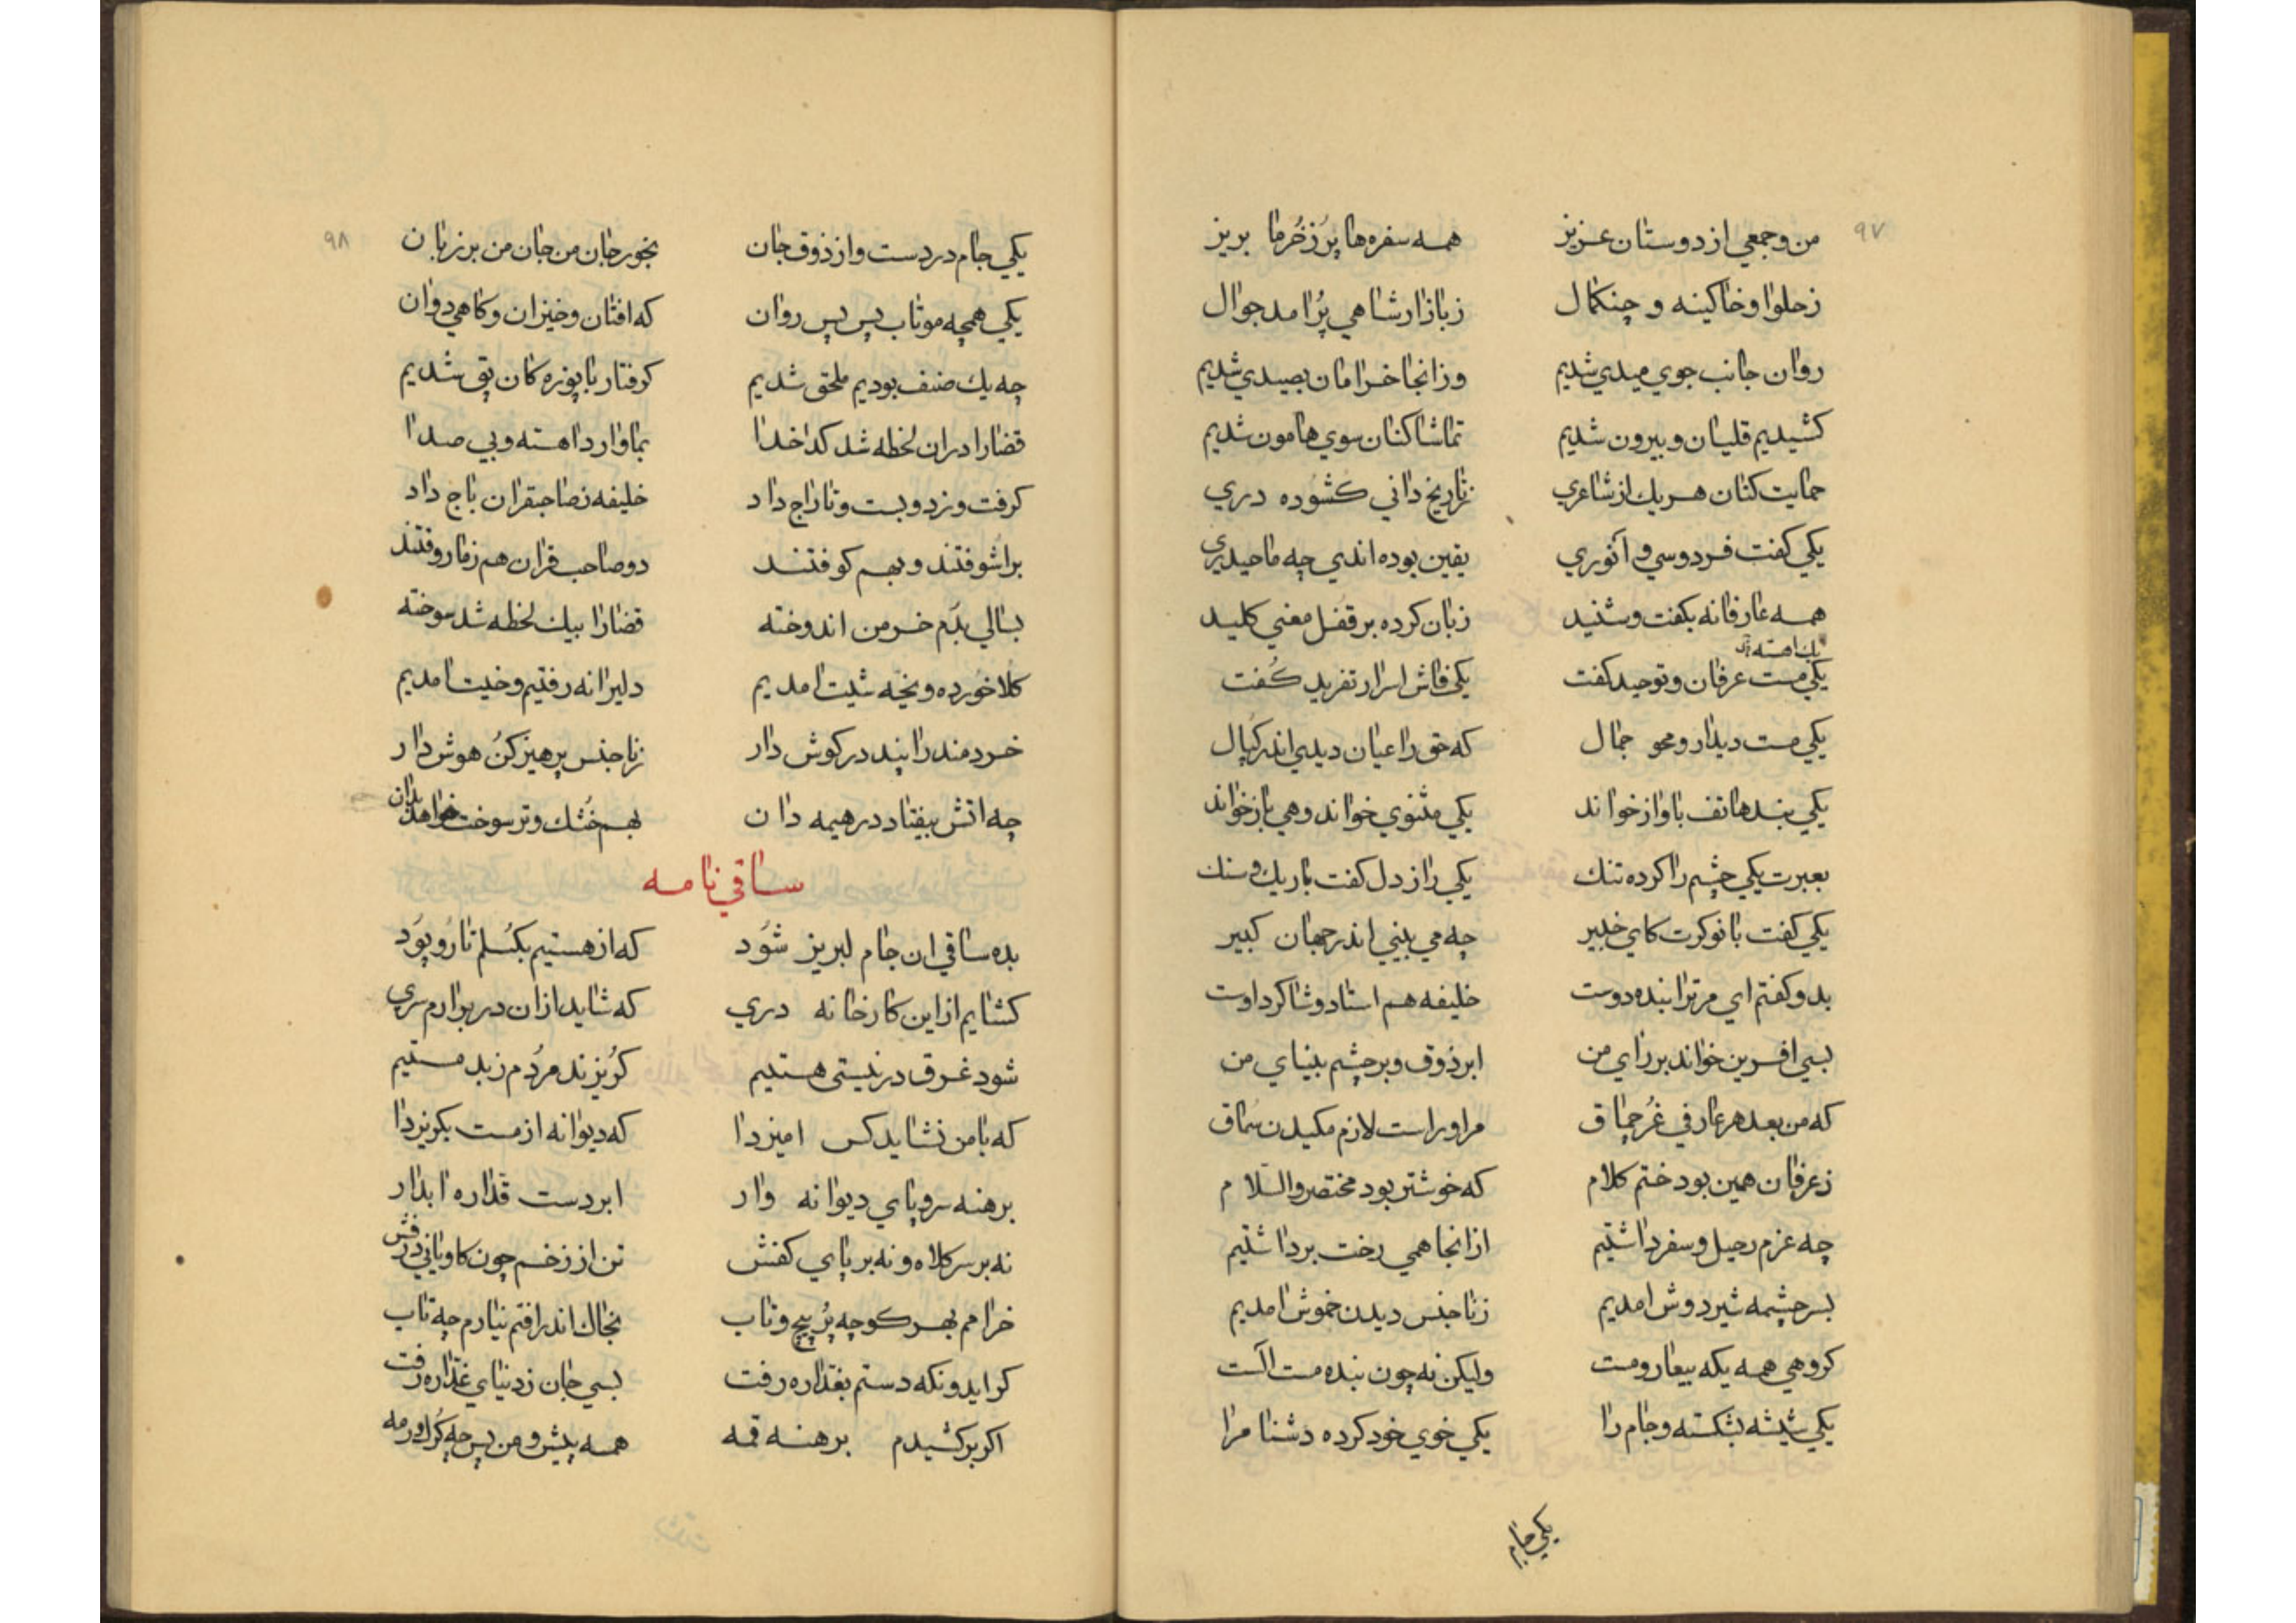 ۹۷
من و جمعي از دوستان عزيز همه سفره‌ها پر ز خرما بريز
ز حلوا و خاكينه و چنكمال ز بازار شاهي پر امد جوال
روان جانب جوي ميدي شديم وز انجا خرامان بصيدي شديم
كشيديم قليان و بيرون شديم تماشا كنان سوي هامون شديم
حمايت كنان هر يك از شاعري ز تاريخ داني كشوده دري
يكي كفت فردوسي و انوري يقين بوده اندي چه ما حيدري
همه عارفانه بكفت و شنيد زبان كرده بر قفل معني كليد
يكي مست عرفان و توحيد كفت يكي فاش اسرار تفريد كفت
يكي مست ديدار و محو جمال كه حق را عيان ديدي اندر كپال
يكي بند هاتف باواز خواند يكي مثنوي خواند و هي باز خواند
بعبرت يكي چشم را كرده تنك يكي راز دل كفت باريك و سنك
يكي كفت با نوكرت كاي خبير چه مي بيني اندر جهان كبير
بدو كفتم اي مر ترا بنده دوست خليفه هم استاد و شاكرد اوست
بسي افرين خواند بر راي من ابر ذوق و بر چشم بيناي من
كه من بعد هر عارفي غرچماق مر او راست لازم مكيدن سماق
ز عرفان همين بود ختم كلام كه خوشتر بود مختصر والسلام
چه عزم رحيل و سفر داشتيم از انجا همي رخت برداشتيم
بسر چشمه شيردوش امديم ز ناجنس ديدن خموش امديم
كروهي همه يكه بيعار و مست وليكن نه چون بنده مست الست
يكي شيشه بشكسته و جام را يكي خوي خود كرده دشنام را
يكي جام
۹۸
يكي جام در دست و از ذوق جان بخور جان من جان من بر زبان
يكي همچه موتاب پس پس روان كه افتان و خيزان و كاهي دوان
چه يك صنف بوديم ملحق شديم كرفتار با پوزه كان پق شديم
قضارا دران لحظه شد كدخدا بما وارد اهسته و بي صدا
كرفت و نزد و بست و تاراج داد خليفه نصاحبقران باج داد
براشوفتند و بهم كوفتند دو صاحب قران هم ز ما روفتند
بسالي بدم خرمن اندوخته قضارا بيك لحظه شد سوخته
كلا خورده و پخه شيت امديم دليرانه رفتيم و خيت امديم
خردمند را پند در كوش دار ز ناجنس پرهيز كن هوش دار
چه اتش بيفتاد در هيمه دان بهم خشك و تر سوخت خواهد بدان
ساقي نامه
بده ساقي ان جام لبريز شود كه از هستيم بكسلم تار و پود
كشايم از اين كارخانه دري كه شايد ازان در برارم سري
شود غرق در نيستي هستيم كريزند مردم ز بد مستيم
كه با من نشايد كس اميزدا كه ديوانه از مست بكريزدا
برهنه سر و پاي ديوانه وار ابر دست قداره ابدار
نه بر سر كلاه و نه بر پاي كفش تن از زخم چون كاوياني درفش
خرامم بهر كوچه پر پيچ و تاب بخاك اندر افتم نيارم چه تاب
كر ايدونكه دستم بقداره رفت بسي جان ز دنياي غداره رفت
اكر بركشيدم برهنه قمه همه پيش و من پس چه كرك و رمه